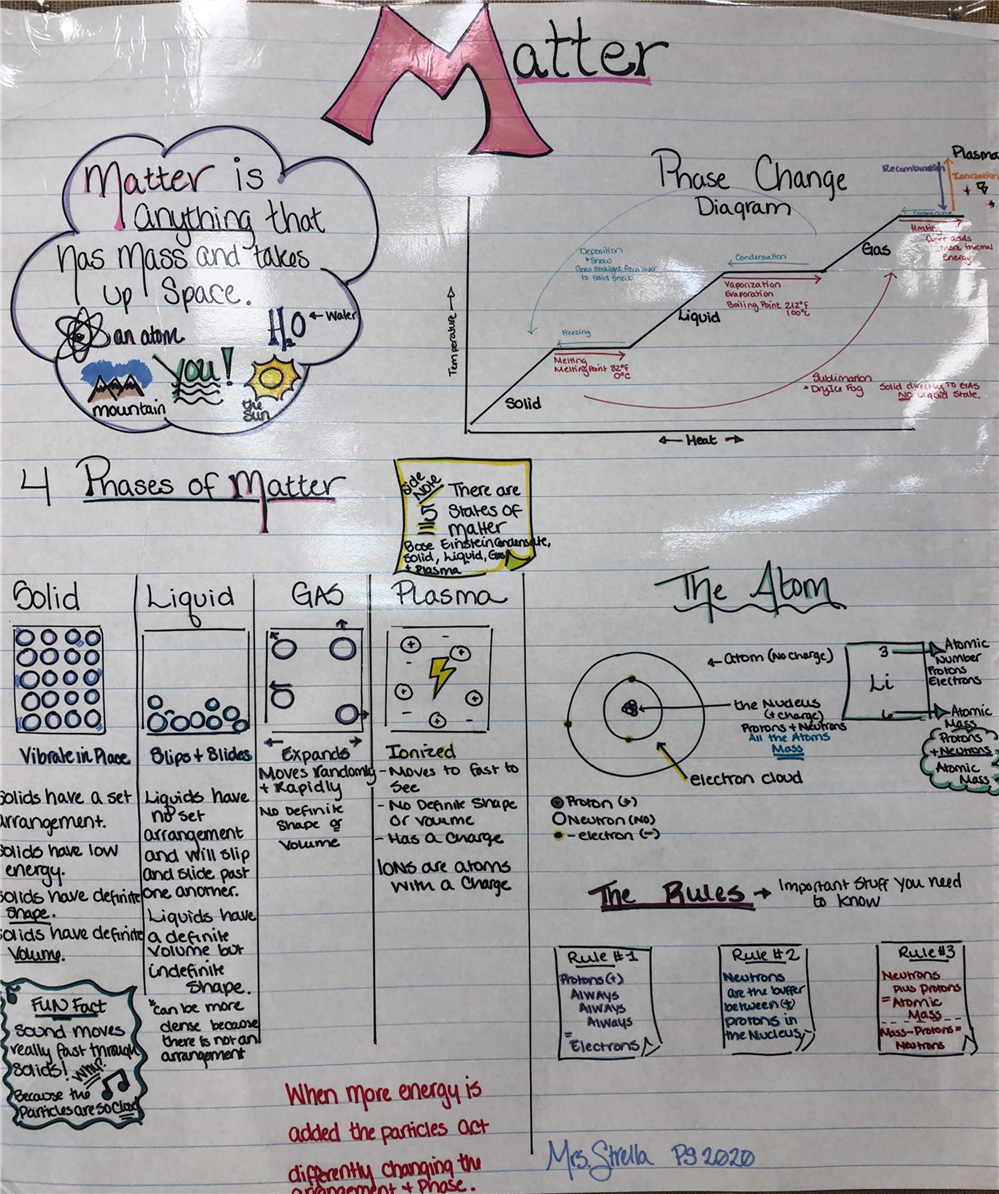 Matter
Matter is
anything that
has mass and takes
up space.
an atom
H2O ← Water
mountain
You!
the
Sun
Phase Change
Diagram
Temperature →
← Heat →
Solid
Liquid
Gas
Plasma
Recombination
Ionization
Deposition
*Snow
to Solid Snow
Condensation
Vaporization
Evaporation
Boiling Point 212°F
100°C
Freezing
Melting
Melting Point 32°F
0°C
Sublimation
*Dry Ice Fog
Solid directly to GAS
NO Liquid State.
more thermal
energy
4 Phases of Matter
Side
Note
There are
5 States of
matter
Bose Einstein Condensate,
Solid, Liquid, Gas
+ Plasma
Solid
Vibrate in Place
Solids have a set
arrangement.
Solids have low
energy.
Solids have definite
Shape.
Solids have definite
Volume.
FUN Fact
Sound moves
really fast through
solids! Why?
Because the
Particles are so Close
Liquid
Slips + Slides
Liquids have
no set
arrangement
and will slip
and slide past
one another.
Liquids have
a definite
volume but
indefinite
Shape.
*can be more
dense because
there is not an
arrangement
GAS
← Expands →
Moves randomly
+ Rapidly
No Definite
Shape or
Volume
Plasma
+ - + - + + - +
Ionized
- Moves to fast to
See
- No Definite Shape
or volume
- Has a Charge
IONs are atoms
with a Charge
The Atom
← Atom (No charge)
the Nucleus
(+ charge)
Protons + Neutrons
All the Atoms
Mass
electron cloud
Proton (+)
Neutron (No)
- electron (-)
3
Li
6
Atomic
Number
Protons
Electrons
Atomic
Mass
Protons
+ Neutrons
Atomic
Mass
The Rules → Important Stuff you need
to know
Rule #1
Protons (+)
Always
Always
Always
=
Electrons
Rule #2
Neutrons
are the buffer
between (+)
protons in
the Nucleus
Rule #3
Neutrons
plus Protons
= Atomic
Mass
Mass-Protons =
Neutrons
When more energy is
added the particles act
differently changing the
arrangement + Phase.
Mrs. Strella PS 2020